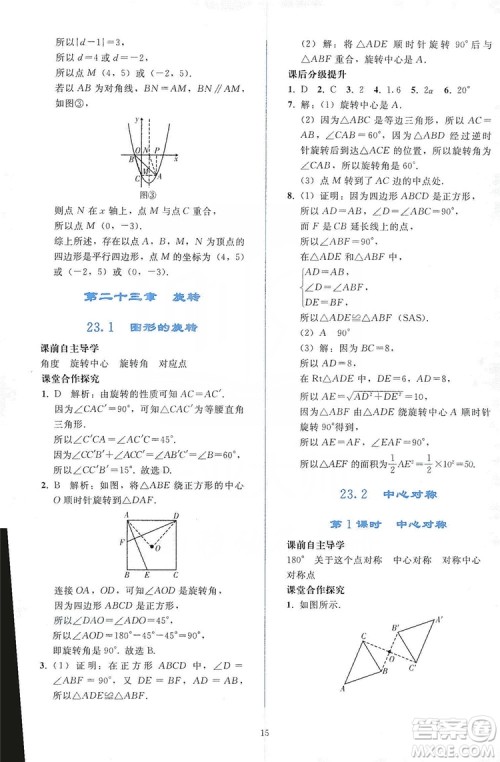 所以|d－1|=3.
所以d=4或d=－2.
所以点M(4，5)或(－2，5).
若以AM为对角线，BN与AM互相平分，
如图③，
O
B
N
P
x
C
A
图③
则点N在x轴上，点M与点C重合，
所以点M(0，－3).
综上所述，存在点M，以A，B，N，M为顶点的
四边形是平行四边形，点M的坐标为(4，5)或
(－2，5)或(0，－3).
第二十三章 旋转
23.1 图形的旋转
课前自主导学
角度 旋转中心 旋转角 对应点
课堂合作探究
1. D 解析：由旋转的性质可知AC=AC′.
因为∠CAC′=90°，可知△CAC′为等腰直角
三角形.
所以∠C′CA=45°.
因为∠CC′B′=15°，所以∠AC′B′=30°.
因为∠C′AB′=∠CAB=90°，
所以∠B=∠AB′C′=60°.故选D.
2. B 解析：如图，△ABE绕正方形的中心
O顺时针旋转后得到△DAF.
A
D
F
O
B
E
C
连接OA，OD，可使OA与OD重合.
因为四边形ABCD是正方形，
所以∠DAO=∠ADO=45°.
所以∠AOD=180°－45°－45°=90°.
即旋转角为90°.故选B.
3. (1)证明：在正方形ABCD中，∠D=
∠ABC=90°，所以∠ABF=90°.
所以∠D=∠ABF=90°.
(2)解：将△ADE顺时针旋转90°后与
△ABF重合，旋转中心是点A.
课后分级提升
1. D 2. C 3. 2 4. 1.6 5. 2a 6. 20°
7. 解：(1)旋转中心是A.
(2)因为△ABC是等边三角形，所以
∠BAC=60°，因为△ABD以A为逆时
针旋转后到△ACE的位置，所以旋转角为60°.
(3)点M转到了AC的中点处.
8. (1)证明：因为四边形ABCD是正方形，
所以AD=AB，∠D=∠ABC=90°.
而F是CB延长线上的点，
所以∠ABF=90°.
在△ADE和△ABF中，
AD=AB，
∠D=∠ABF，
DE=BF，
所以△ADE≌△ABF(SAS).
(2)A 90
(3)解：因为BC=8，所以AD=8.
在Rt△ADE中，DE=6，AD=8，
所以AE=√AD²+DE²=10.
因为△ABF可以由△ADE绕旋转中心A顺时针
旋转90°得到，
所以AE=AF，∠EAF=90°.
所以△AEF的面积为½AE²=½×100=50.
23.2 中心对称
第1课时 中心对称
课前自主导学
180° 关于这个点对称 中心对称 对称中心
对称点
课堂合作探究
1. 如图所示.
A′
B′
C
O
C′
B
A
15
答案圈
MXQE.COM